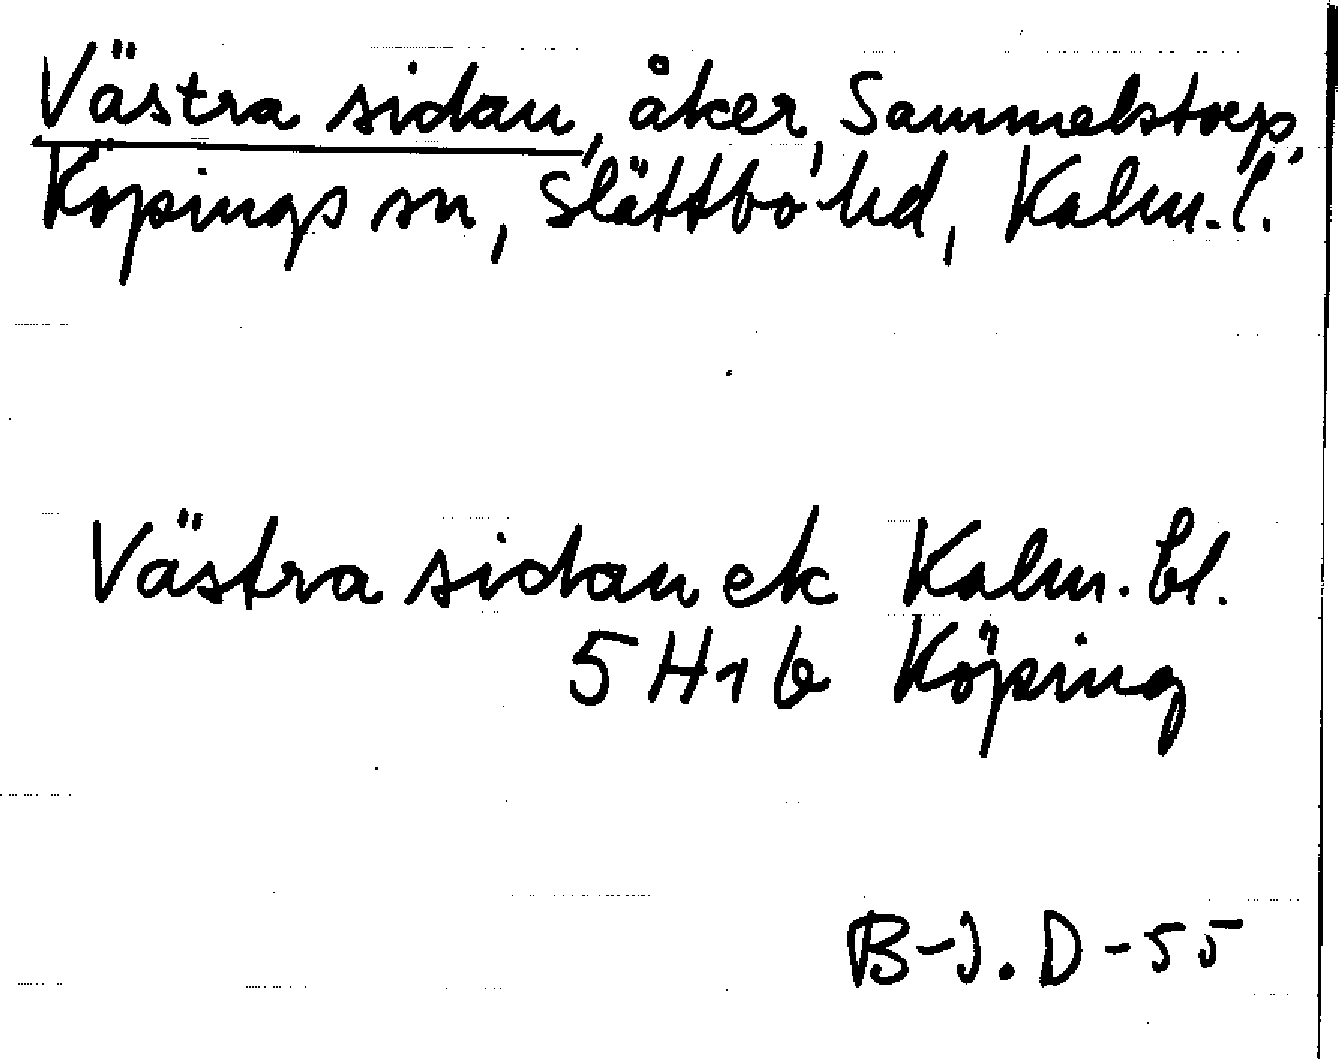 Västra sidan, åker, Sammelstorp,
Köpings sn, Slättbo hd, Kalm. l.
Västra sidan ek Kalm. bl.
5H1b Köping
B-J. D-55